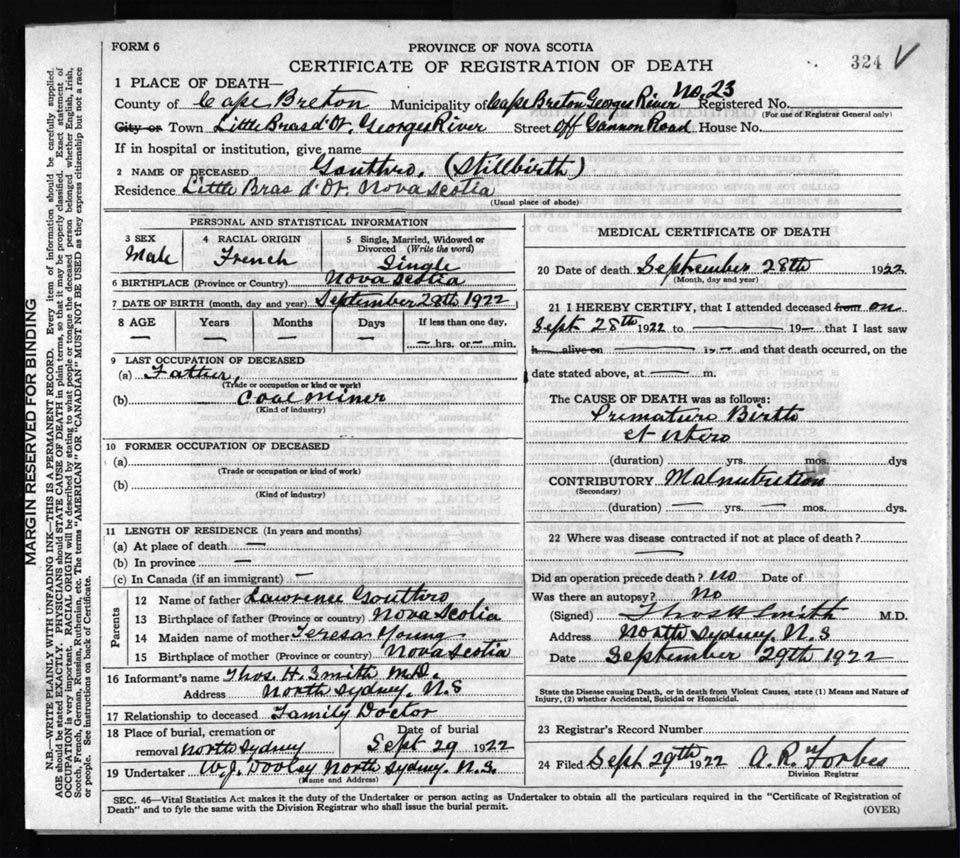 FORM 6
PROVINCE OF NOVA SCOTIA
CERTIFICATE OF REGISTRATION OF DEATH
324 V
1 PLACE OF DEATH—
County of Cape Breton Municipality of Cape Breton Georges River No. 23 Registered No.
(For use of Registrar General only)
City or Town Little Bras d'Or. Georges River Street Off Gannon Road House No.
If in hospital or institution, give name
2 NAME OF DECEASED Gouthro. (Stillbirth)
Residence Little Bras d'Or. Nova Scotia
(Usual place of abode)
PERSONAL AND STATISTICAL INFORMATION
3 SEX 4 RACIAL ORIGIN 5 Single, Married, Widowed or Divorced (Write the word)
Male French Single
6 BIRTHPLACE (Province or Country) Nova Scotia
7 DATE OF BIRTH (month, day and year) September 28th 1922
8 AGE Years Months Days If less than one day,
— — — — — hrs. or — min.
9 LAST OCCUPATION OF DECEASED
(a) Father,
(Trade or occupation or kind or work)
(b) Coal Miner
(Kind of industry)
10 FORMER OCCUPATION OF DECEASED
(a)
(Trade or occupation or kind of work)
(b)
(Kind of industry)
11 LENGTH OF RESIDENCE (In years and months)
(a) At place of death —
(b) In province —
(c) In Canada (if an immigrant) —
Parents
12 Name of father Lawrence Gouthro
13 Birthplace of father (Province or country) Nova Scotia
14 Maiden name of mother Teresa Young
15 Birthplace of mother (Province or country) Nova Scotia
16 Informant's name Thos. H. Smith M.D.
Address North Sydney. N.S
17 Relationship to deceased Family Doctor
18 Place of burial, cremation or removal North Sydney
Date of burial Sept 29 1922
19 Undertaker W. J. Dooley North Sydney. N.S.
(Name and Address)
MEDICAL CERTIFICATE OF DEATH
20 Date of death September 28th 1922
(Month, day and year)
21 I HEREBY CERTIFY, that I attended deceased from on
Sept 28th 1922 to — 19— that I last saw
h— alive on — 19— and that death occurred, on the
date stated above, at — m.
The CAUSE OF DEATH was as follows:
Premature Birth
et utero
(duration) yrs. mos. dys
CONTRIBUTORY Malnutrition
(Secondary)
(duration) — yrs. — mos. dys.
22 Where was disease contracted if not at place of death?
—
Did an operation precede death? no Date of
Was there an autopsy? No
(Signed) Thos H Smith M.D.
Address North Sydney. N.S
Date September 29th 1922
State the Disease causing Death, or in death from Violent Causes, state (1) Means and Nature of
Injury, (2) whether Accidental, Suicidal or Homicidal.
23 Registrar's Record Number
24 Filed Sept 29th 1922 A. R. Forbes
Division Registrar
SEC. 46—Vital Statistics Act makes it the duty of the Undertaker or person acting as Undertaker to obtain all the particulars required in the "Certificate of Registration of
Death" and to fyle the same with the Division Registrar who shall issue the burial permit.
(OVER)
MARGIN RESERVED FOR BINDING
N.B.—WRITE PLAINLY WITH UNFADING INK—THIS IS A PERMANENT RECORD. Every item of information should be carefully supplied.
AGE should be stated EXACTLY. PHYSICIANS should STATE CAUSE OF DEATH in plain terms, so that it may be properly classified. Exact statement of
OCCUPATION is very important. RACIAL ORIGIN will be described by stating to what people or tongue the deceased person belonged whether English, Irish,
Scotch, French, German, Russian, Ruthenian, etc. The terms "AMERICAN" OR "CANADIAN" MUST NOT BE USED as they express citizenship but not a race
or people. See instructions on back of Certificate.